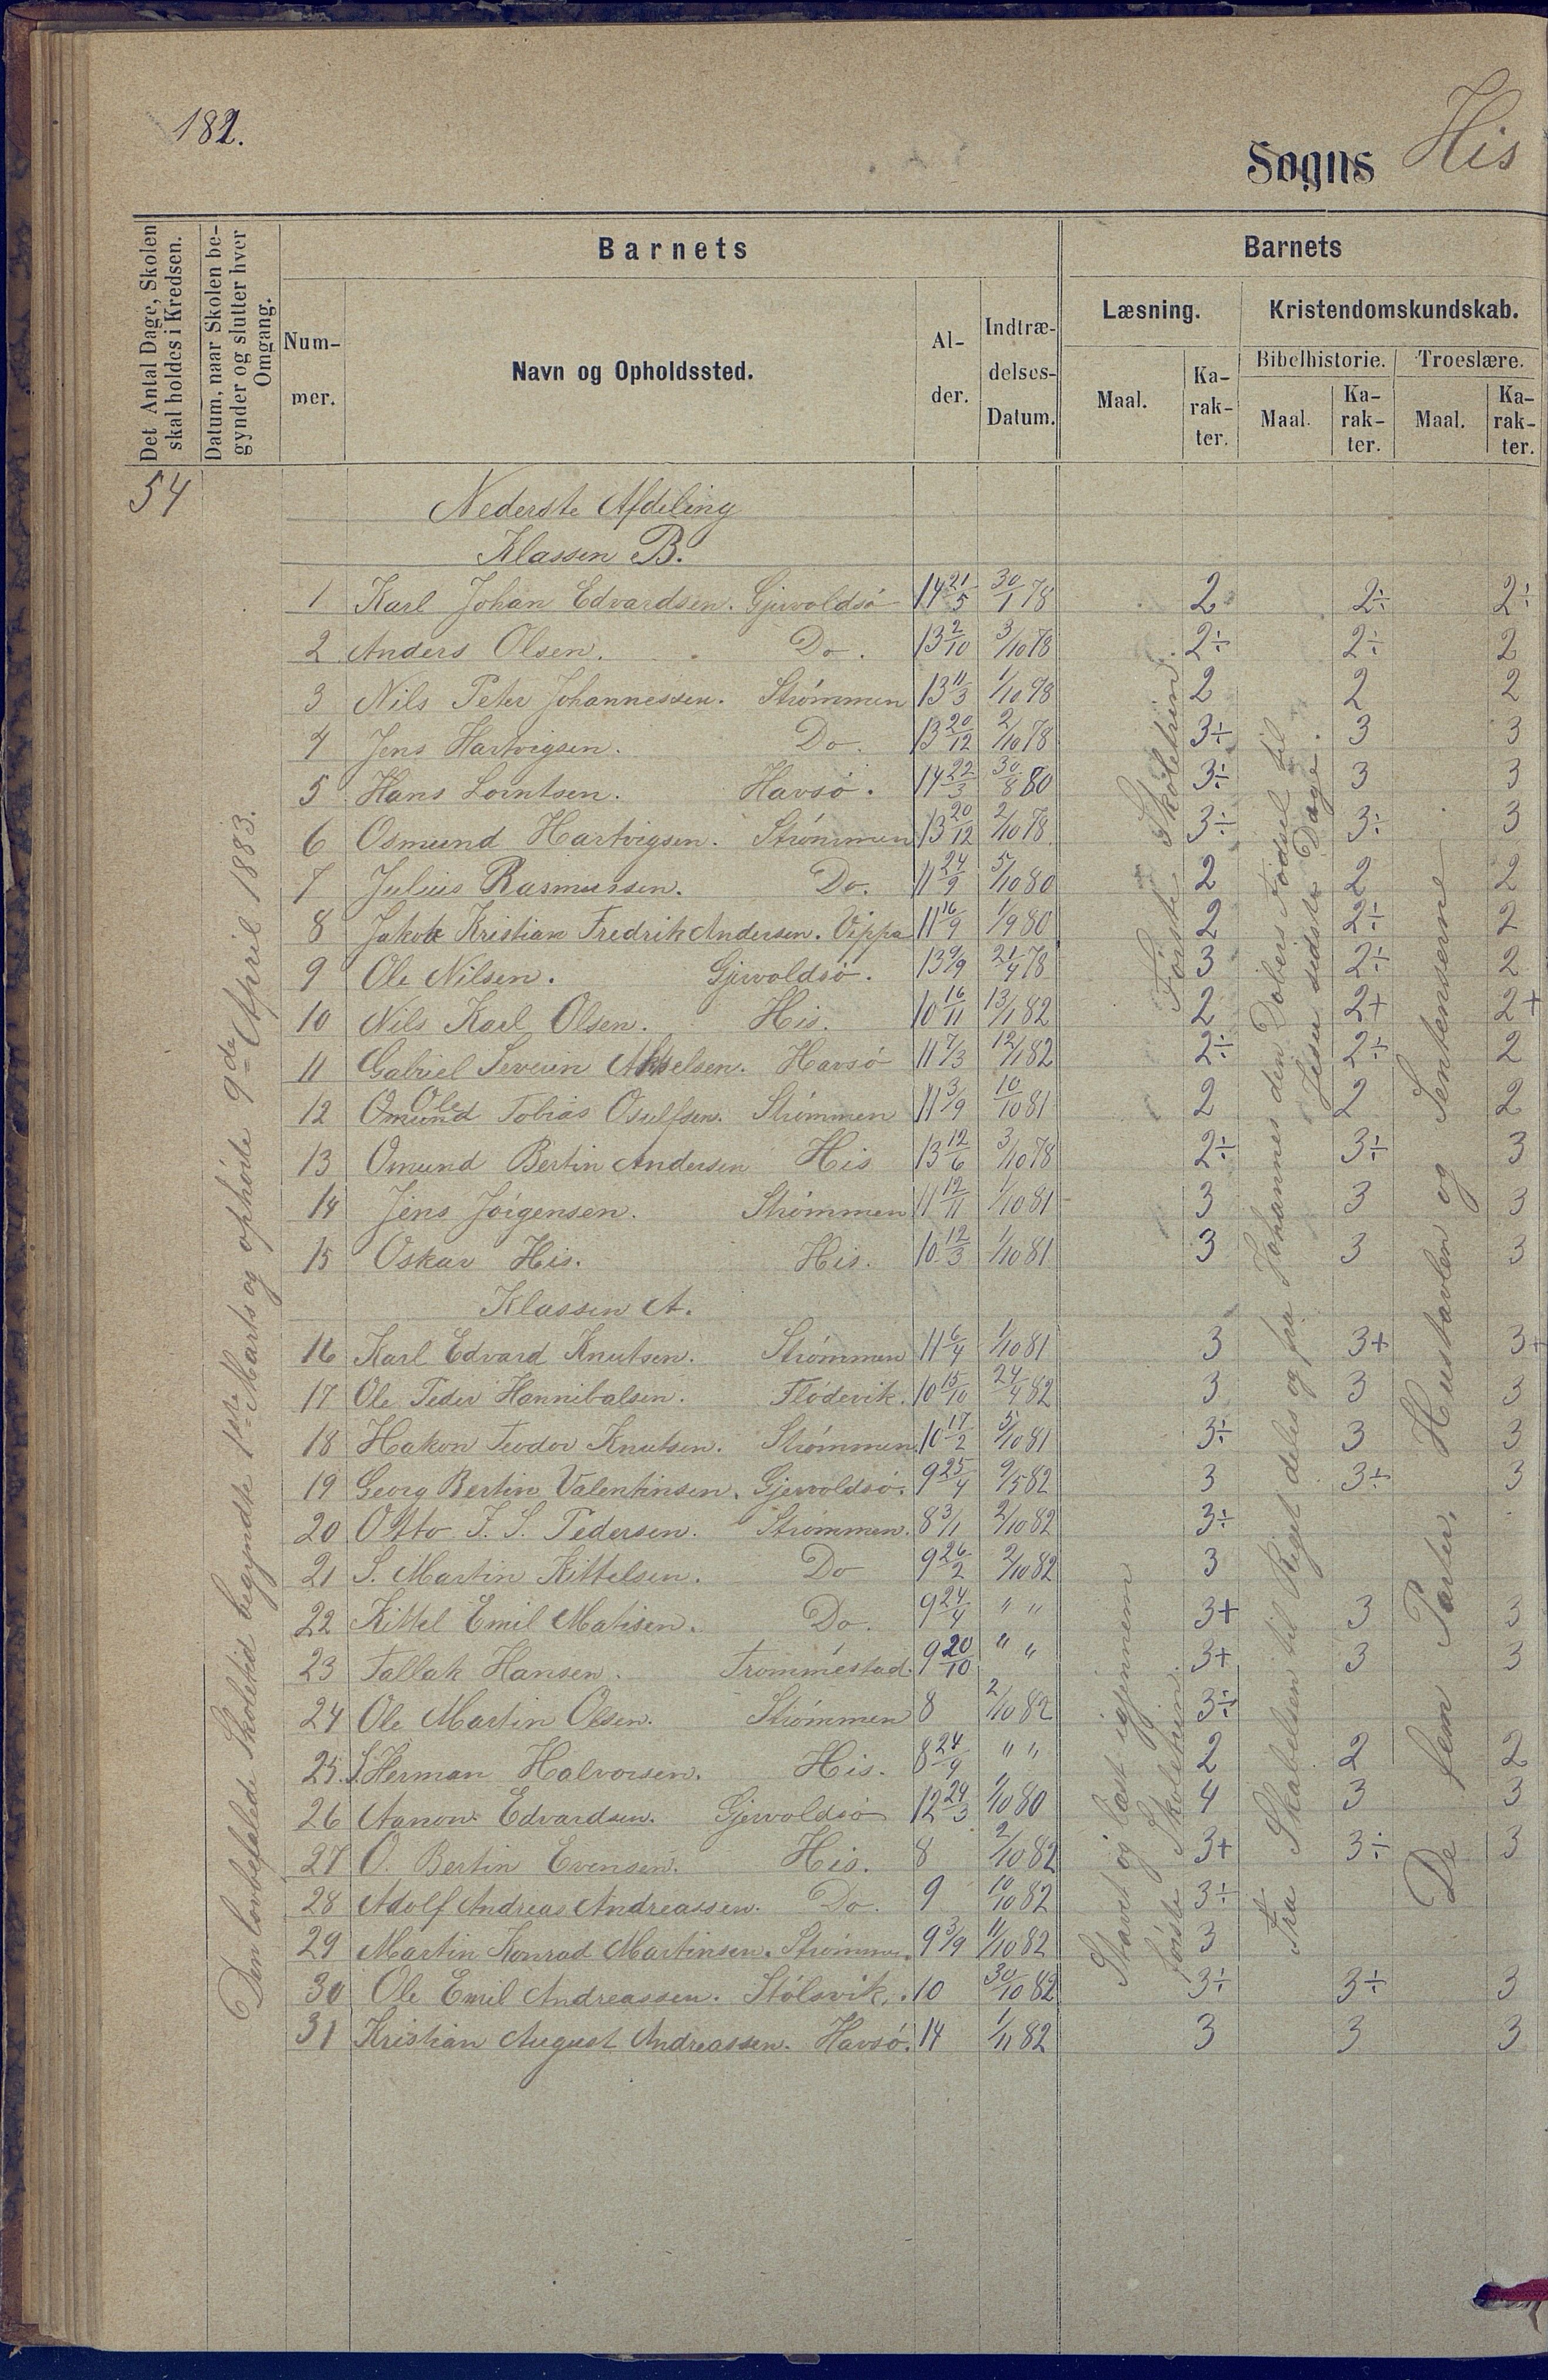 182.
Sogns His
Det Antal Dage, Skolen skal holdes i Kredsen.
Datum, naar Skolen begynder og slutter hver Omgang.
Barnets
Barnets
Num-mer.
Navn og Opholdssted.
Al-der.
Indtræ-delses-Datum.
Læsning.
Kristendomskundskab.
Bibelhistorie.
Troeslære.
Maal.
Ka-rak-ter.
Maal.
Ka-rak-ter.
Maal.
Ka-rak-ter.
54
Den lovbefalede Skoletid begyndte 1ste Marts og ophørte 9de April 1883.
Nederste Afdeling
Klassen B.
1 Karl Johan Edvardsen. Gjervoldsö 14 21/5 30/1 78 2 2÷ 2÷
2 Anders Olsen. Do. 13 2/10 3/10 78 2÷ 2÷ 2
3 Nils Peter Johannessen. Strömmen 13 11/3 1/10 78 2 2 2
4 Jens Hartvigsen. Do. 13 20/12 2/10 78 3÷ 3 3
5 Hans Lorntsen. Havsö. 14 22/3 30/8 80 3÷ 3 3
6 Osmund Hartvigsen. Strömmen 13 20/12 2/10 78 3÷ 3÷ 3
7 Julius Rasmussen. Do. 11 24/9 5/10 80 2 2 2
8 Jakob Kristian Fredrik Andersen. Vippa 11 16/9 1/9 80 2 2÷ 2
9 Ole Nilsen. Gjervoldsö. 13 9/9 21/4 78 3 2÷ 2
10 Nils Karl Olsen. His. 10 16/11 13/1 82 2 2+ 2+
11 Gabriel Severin Akselsen. Havsö 11 7/3 12/1 82 2÷ 2÷ 2
12 Omund Ole Tobias Osulfsen. Strömmen 11 3/9 10/10 81 2 2 2
13 Omund Bertin Andersen His 13 12/6 3/10 78 2÷ 3÷ 3
14 Jens Jörgensen. Strömmen 11 12/11 1/10 81 3 3 3
15 Oskar His. His. 10 12/3 1/10 81 3 3 3
Klassen A.
16 Karl Edvard Knutsen. Strömmen 11 6/4 1/10 81 3 3+ 3+
17 Ole Peder Hannibalsen. Flödevik. 10 15/10 24/4 82 3 3 3
18 Hakon Teodor Knutsen. Strömmen. 10 17/2 5/10 81 3÷ 3 3
19 Georg Bertin Valentinsen. Gjervoldsö. 9 25/4 9/5 82 3 3÷ 3
20 Otto J. S. Pedersen. Strömmen. 8 3/1 2/10 82 3÷
21 S. Martin Kittelsen. Do 9 26/2 2/10 82 3
22 Kittel Emil Matisen. Do. 9 24/4 " " 3+ 3 3
23 Tallak Hansen. Trommestad. 9 20/10 " " 3+ 3 3
24 Ole Martin Olsen. Strömmen 8 2/10 82 3÷
25. J. Herman Halvorsen. His. 8 24/4 " " 2 2 2
26 Aanon Edvardsen. Gjervoldsö 12 24/3 1/10 80 4 3 3
27 O. Bertin Evensen. His. 8 2/10 82 3+ 3÷ 3
28 Adolf Andreas Andreassen. Do. 9 10/10 82 3÷
29 Martin Konrad Martinsen. Strömmen. 9 3/9 11/10 82 3
30 Ole Emil Andreassen. Stölsvik. 10 30/10 82 3÷ 3÷ 3
31 Kristian August Andreassen. Havsö. 14 1/11 82 3 3 3
Första Skoletrin.
Stavet og læst igjennem
første Skoletrin.
Fra Skabelsen til Riget deles og fra Johannes den Døbers Fødsel til
Jesu sidste Dage.
De fem Parter, Hustavlen og Sentenserne